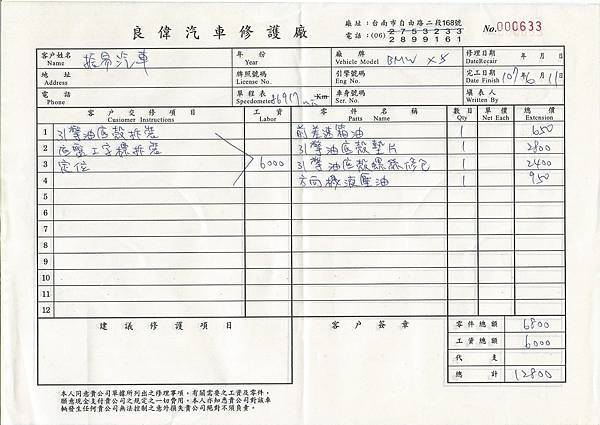 良偉汽車修護廠
廠址：台南市自由路二段168號
電話：(06) 2753233
2899161
No.000633
客戶姓名 Name 汽車
年份 Year
廠牌 Vehicle Model BMW X5
修理日期 DateRecair 年 月 日
地址 Address
牌照號碼 License No.
引擎號碼 Eng No.
完工日期 Date Finish 107年6月11日
電話 Phone
單程表 Speedometer Km
車身號碼 Ser. No.
填表人 Written By
客戶交修項目 Customer Instructions
工資 Labor
零件名稱 Parts Name
數目 Qty
單價 Net Each
總價 Extension
1 引擎油底殼拆裝 前差速箱油 1 650
2 底盤工字樑拆裝 引擎油底殼墊片 1 2800
3 定位 6000 引擎油底殼螺絲修包 1 2400
4 方向機液壓油 1 950
5
6
7
8
9
10
11
12
建議修護項目
客戶簽章
零件總額 6800
工資總額 6000
代支
總計 12800
本人同意貴公司單據所列出之修理事項，有關需要之工資及零件，
願意現金支付貴公司之規定之一切費用。本人亦知悉貴公司對該車
輛發生任何貴公司無法控制之意外損失貴公司絕對不須負責。